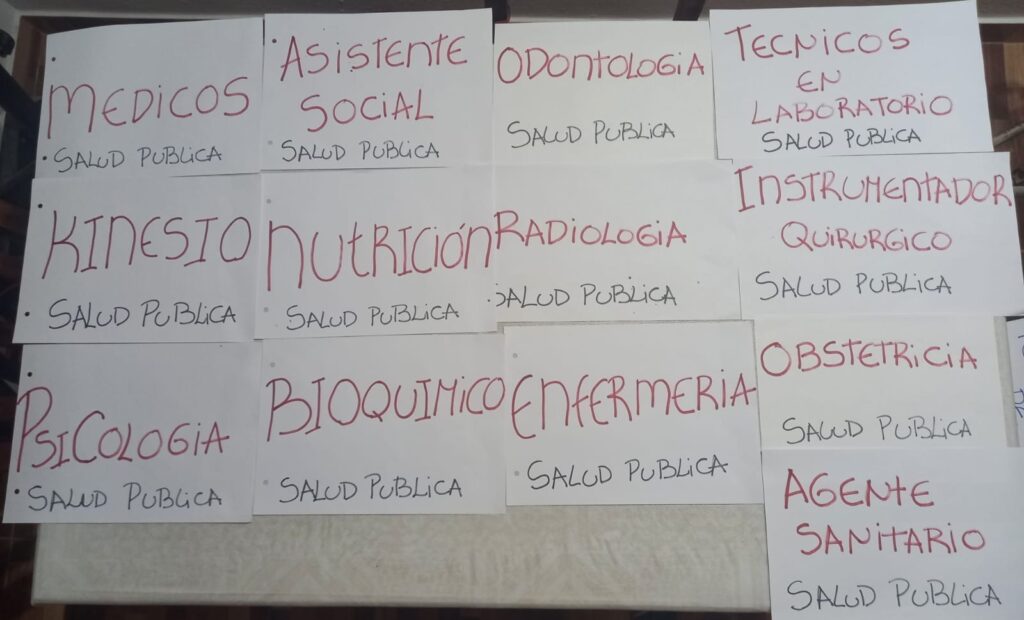 MEDICOS
• SALUD PUBLICA
• ASISTENTE
SOCIAL
• SALUD PUBLICA
ODONTOLOGIA
SALUD PUBLICA
TECNICOS
EN
LABORATORIO
SALUD PUBLICA
KINESIO
• SALUD PUBLICA
NUTRICIÓN
SALUD PUBLICA
RADIOLOGIA
SALUD PUBLICA
INSTRUMENTADOR
QUIRURGICO
SALUD PUBLICA
PSICOLOGIA
• SALUD PUBLICA
BIOQUIMICO
SALUD PUBLICA
ENFERMERIA
SALUD PUBLICA
OBSTETRICIA
SALUD PUBLICA
AGENTE
SANITARIO
SALUD PUBLICA